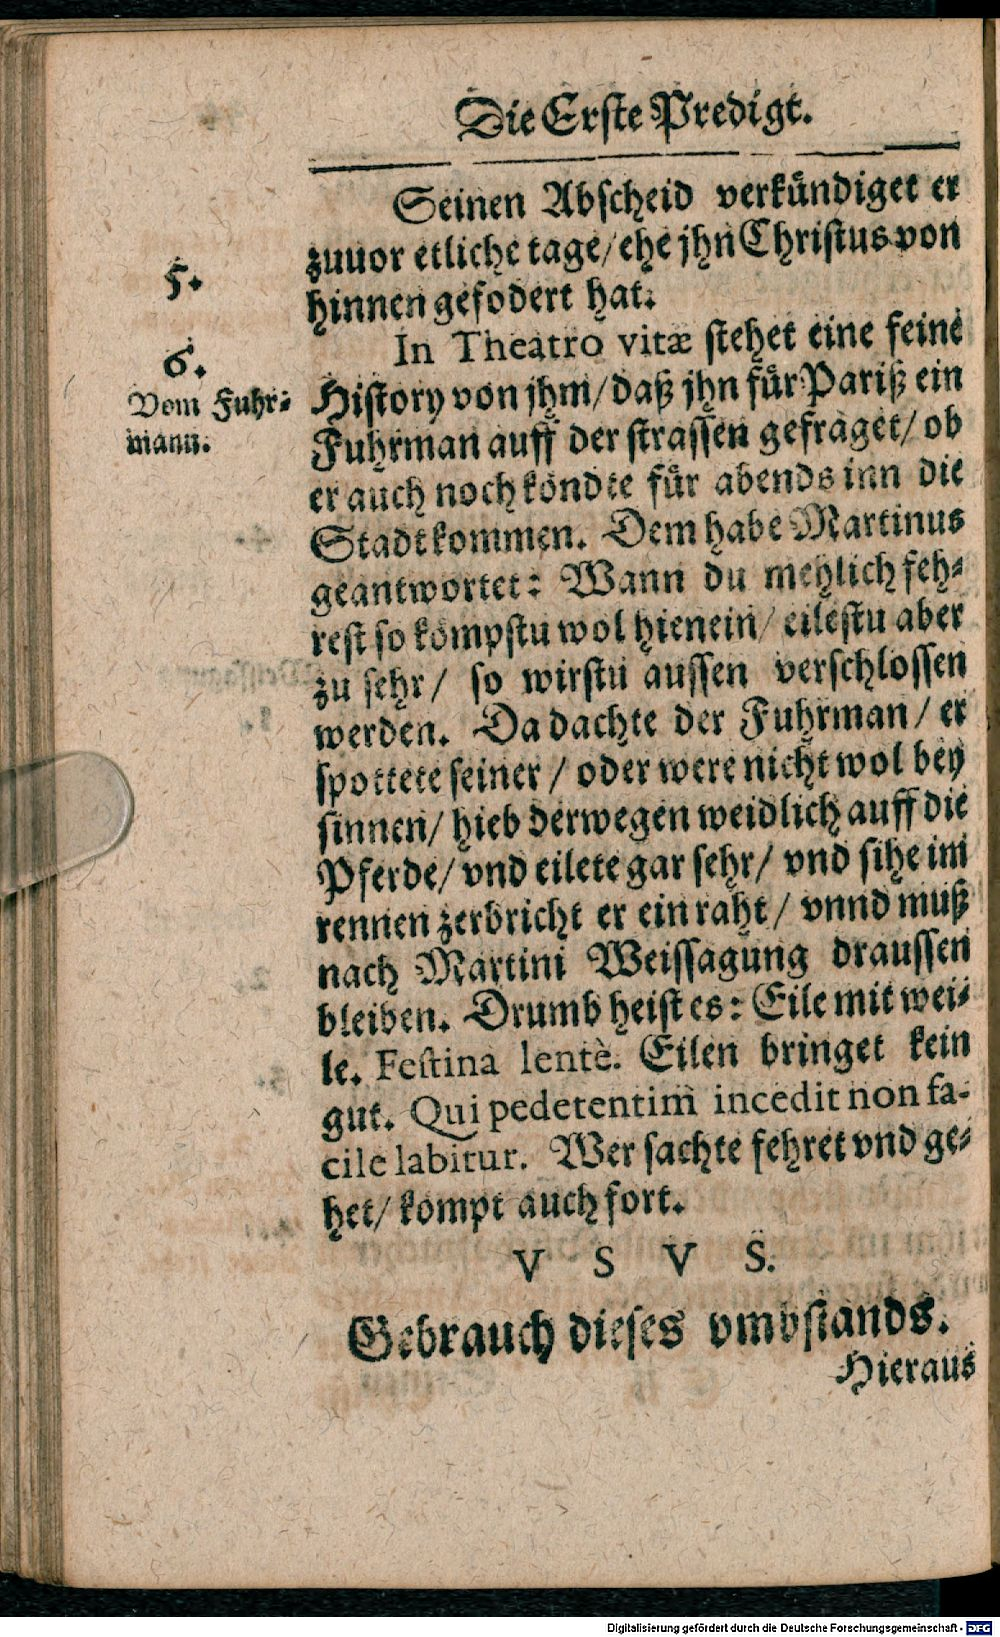 Die Erste Predigt.
Seinen Abscheid verkündiget er
zuuor etliche tage/ ehe jhn Christus von
5.
hinnen gefodert hat.
In Theatro vitæ stehet eine feine
6.
Vom Fuhr-
mann.
History von jhm/ daß jhn für Pariß ein
Fuhrman auff der strassen gefraget/ ob
er auch noch köndte für abends inn die
Stadt kommen. Dem habe Martinus
geantwortet: Wann du mehlich feh-
rest so kömpstu wol hienein/ eilestu aber
zu sehr/ so wirstu aussen verschlossen
werden. Da dachte der Fuhrman/ er
spottete seiner/ oder were nicht wol bey
sinnen/ hieb derwegen weidlich auff die
Pferde/ vnd eilete gar sehr/ vnd sihe im
rennen zerbricht er ein raht/ vnnd muß
nach Martini Weissagung draussen
bleiben. Drumb heist es: Eile mit wei-
le. Festina lentè. Eilen bringet kein
gut. Qui pedetentim incedit non fa-
cile labitur. Wer sachte fehret vnd ge-
het/ kompt auch fort.
V S V S.
Gebrauch dieses vmbstands.
Hieraus
Digitalisierung gefördert durch die Deutsche Forschungsgemeinschaft - DFG